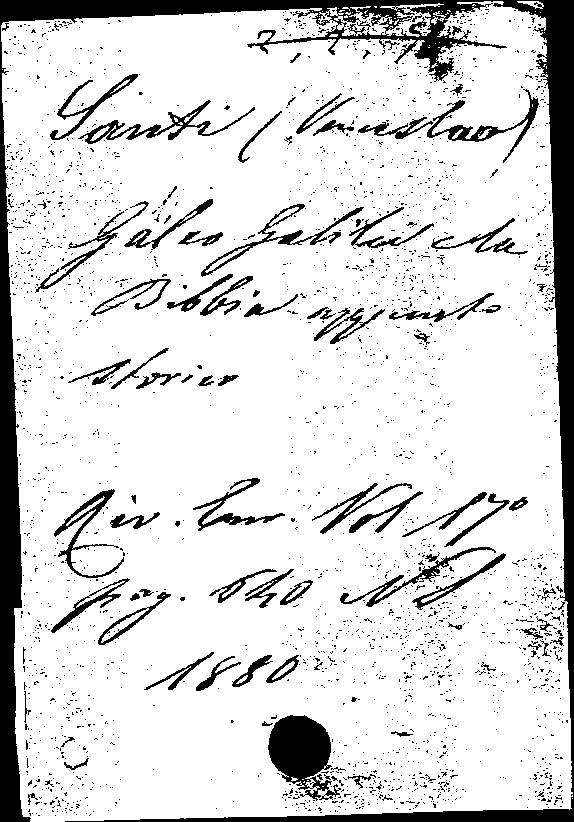 Santi (Venceslao)
Galileo Galilei e la
Bibbia appunto
storico
Riv. Eur. Vol 17º
pag. 540
1880